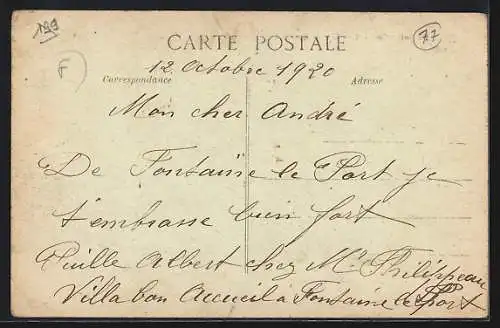 199
77
F
CARTE POSTALE
12 Octobre 1920
Correspondance
Adresse
Mon cher André
De Fontaine le Port je
t'embrasse bien fort
Albert chez Mr Philippeau
Villa bon Accueil à Fontaine le Port